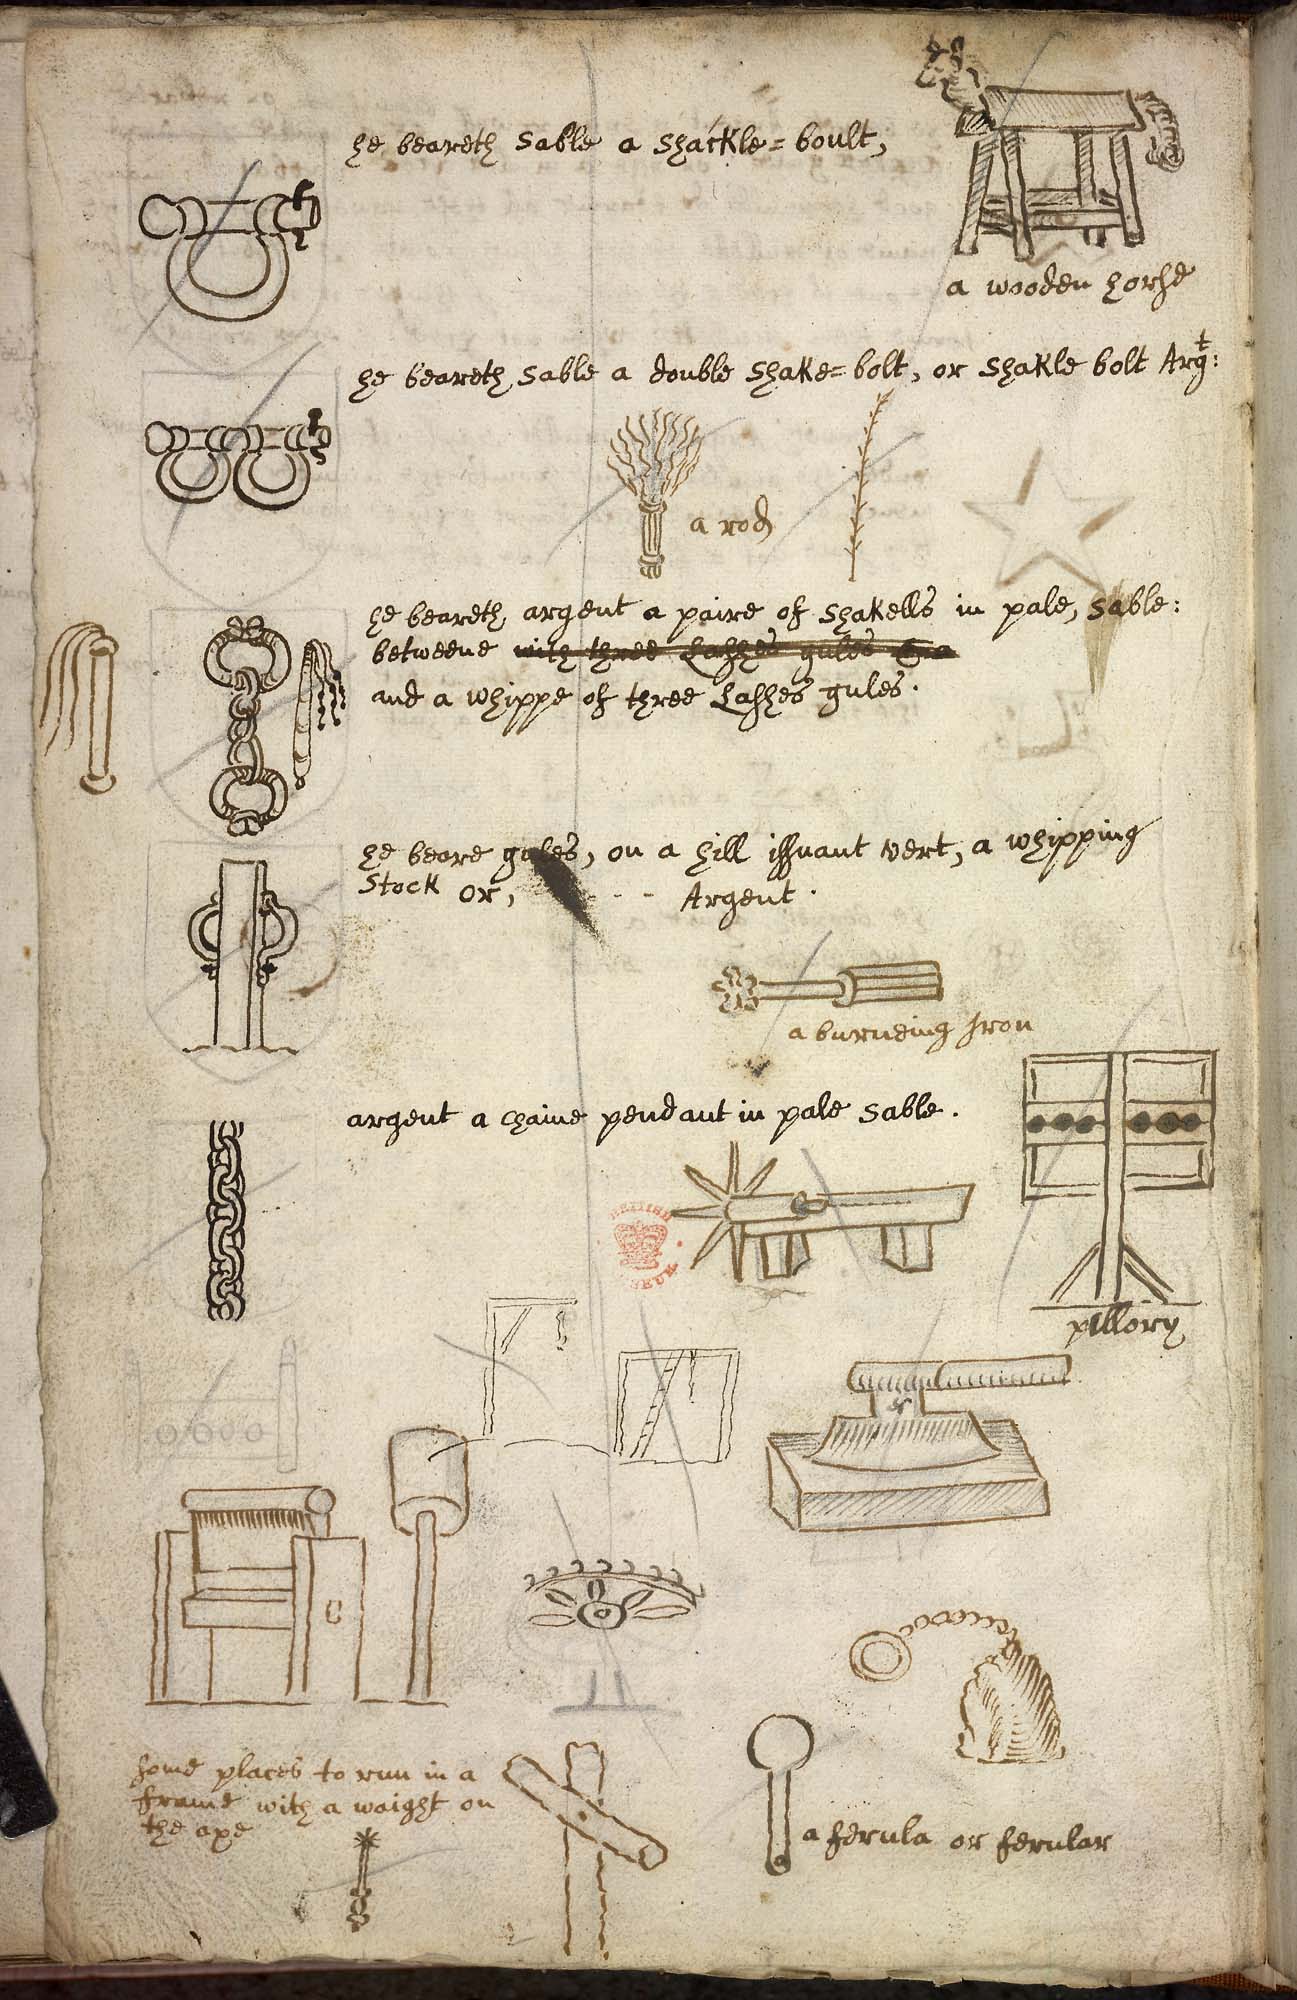 he beareth Sable a Shackle=boult,
a wooden horse
he beareth Sable a double Shake=bolt, or Shakle bolt Argt:
a rod
he beareth argent a paire of Shakells in pale, Sable:
betweene with three Lashes gules
and a whippe of three Lashes gules.
he beare gules, on a hill issuant vert, a whipping
Stock or, - - Argent.
a burneing Iron
argent a chaine pendant in pale Sable.
BRITISH MUSEUM
pillory
some places to run in a
frame with a waight on
the axe
a ferula or ferular